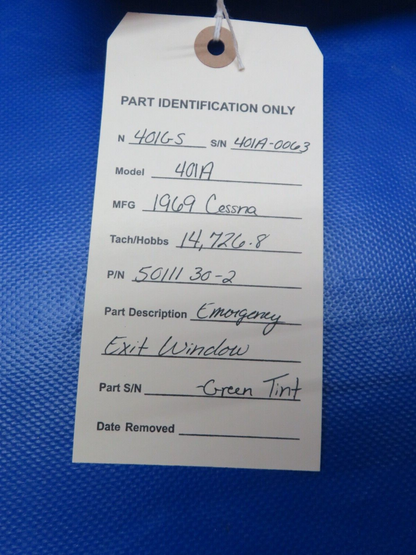 PART IDENTIFICATION ONLY
N 401GS S/N 401A-0063
Model 401A
MFG 1969 Cessna
Tach/Hobbs 14,726.8
P/N 5011130-2
Part Description Emergency
Exit Window
Part S/N -Green Tint
Date Removed